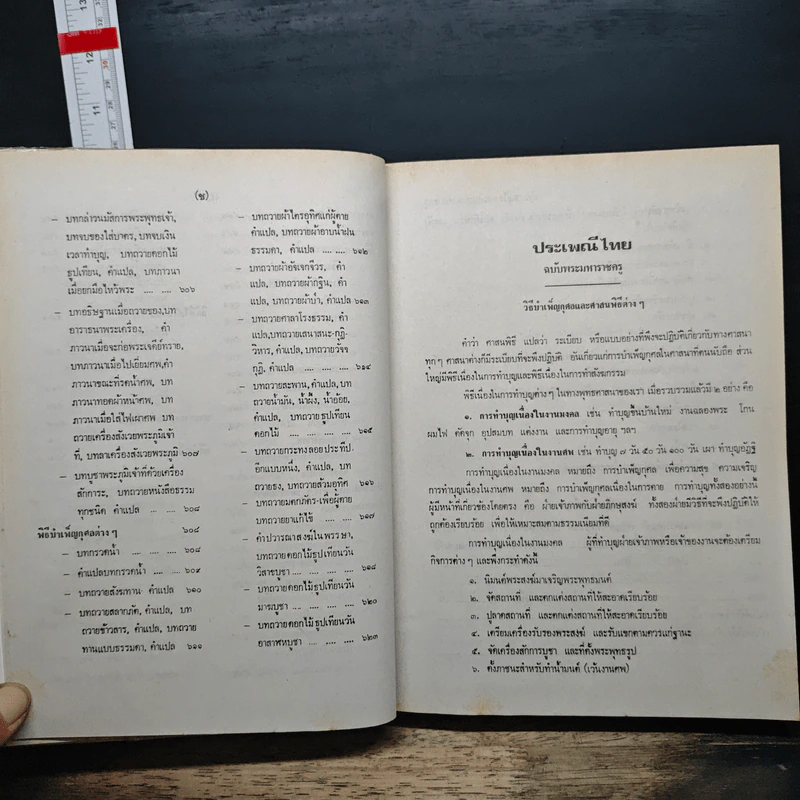 (ซ)
– บทกล่าวนมัสการพระพุทธเจ้า,
บทจบของใส่บาตร, บทจบเงิน
เวลาทำบุญ, บทถวายดอกไม้
ธูปเทียน, คำแปล, บทภาวนา
เมื่อยกมือไหว้พระ .... .... ๖๐๖
– บทอธิษฐานเมื่อถวายของ,บท
อาราธนาพระเครื่อง, คำ
ภาวนาเมื่อจะก่อพระเจดีย์ทราย,
บทภาวนาเมื่อไปเยี่ยมศพ,คำ
ภาวนาขณะที่รดน้ำศพ, บท
ภาวนาทอดผ้าหน้าศพ, บท
ภาวนาเมื่อใส่ไฟเผาศพ บท
ถวายเครื่องสังเวยพระภูมิเจ้า
ที่, บทลาเครื่องสังเวยพระภูมิ ๖๐๗
– บทบูชาพระภูมิเจ้าที่ด้วยเครื่อง
สักการะ, บทถวายหนังสือธรรม
ทุกชนิด คำแปล .... .... ๖๐๘
พิธีบำเพ็ญกุศลต่าง ๆ ๖๐๘
– บทกรวดน้ำ .... .... .... ๖๐๘
– คำแปลบทกรวดน้ำ .... ๖๐๙
– บทถวายสังฆทาน คำแปล ๖๑๐
– บทถวายสลากภัต, คำแปล, บท
ถวายข้าวสาร, คำแปล, บทถวาย
ทานแบบธรรมดา, คำแปล ๖๑๑
– บทถวายผ้าไตรอุทิศแก่ผู้ตาย
คำแปล, บทถวายผ้าอาบน้ำฝน
ธรรมดา, คำแปล .... .... ๖๑๒
– บทถวายผ้าอัจเจกจีวร, คำ
แปล, บทถวายผ้ากฐิน, คำ
แปล, บทถวายผ้าป่า, คำแปล ๖๑๓
– บทถวายศาลาโรงธรรม, คำ
แปล,บทถวายเสนาสนะ-กุฏิ-
วิหาร, คำแปล, บทถวายวัจจ
กุฎี, คำแปล .... .... .... ๖๑๔
– บทถวายสะพาน, คำแปล,บท
ถวายน้ำมัน, น้ำผึ้ง, น้ำอ้อย,
คำแปล, บทถวายธูปเทียน
ดอกไม้ .... .... .... .... ๖๑๕
– บทถวายกระทงลอยประทีป
อีกแบบหนึ่ง, คำแปล, บท
ถวายธง, บทถวายส้วมอุทิศ ๖๑๖
– บทถวายมตกภัตร-เพื่อผู้ตาย
บทถวายยาแก้ไข้ .... .... ๖๑๗
– คำปวารณาสงฆ์ในพรรษา,
บทถวายดอกไม้ธูปเทียนวัน
วิสาขบูชา .... .... .... .... ๖๑๘
– บทถวายดอกไม้ธูปเทียนวัน
มาฆบูชา .... .... .... .... ๖๒๐
– บทถวายดอกไม้ธูปเทียนวัน
อาสาฬหบูชา .... .... .... ๖๒๓
ประเพณีไทย
ฉบับพระมหาราชครู
วิธีบำเพ็ญกุศลและศาสนพิธีต่าง ๆ
คำว่า ศาสนพิธี แปลว่า ระเบียบ หรือแบบอย่างที่พึงจะปฏิบัติเกี่ยวกับทางศาสนา
ทุกๆ ศาสนาต่างก็มีระเบียบที่จะพึงปฏิบัติ อันเกี่ยวแก่การบำเพ็ญกุศลในศาสนาที่ตนนับถือ ส่วน
ใหญ่มีพิธีเนื่องในการทำบุญและพิธีเนื่องในการทำสังฆกรรม
พิธีเนื่องในการทำบุญต่างๆ ในทางพุทธศาสนาของเรา เมื่อรวบรวมแล้วมี ๒ อย่าง คือ
๑. การทำบุญเนื่องในงานมงคล เช่น ทำบุญขึ้นบ้านใหม่ งานฉลองพระ โกน
ผมไฟ ตัดจุก อุปสมบท แต่งงาน และการทำบุญอายุ ฯลฯ
๒. การทำบุญเนื่องในงานศพ เช่น ทำบุญ ๗ วัน ๕๐ วัน ๑๐๐ วัน เผา ทำบุญอัฏฐิ
การทำบุญเนื่องในงานมงคล หมายถึง การบำเพ็ญกุศล เพื่อความสุข ความเจริญ
การทำบุญเนื่องในงานศพ หมายถึง การบำเพ็ญกุศลเนื่องในการตาย การทำบุญทั้งสองอย่างนี้
ผู้มีหน้าที่เกี่ยวข้องโดยตรง คือ ฝ่ายเจ้าภาพกับฝ่ายภิกษุสงฆ์ ทั้งสองฝ่ายมีวิธีที่จะพึงปฏิบัติให้
ถูกต้องเรียบร้อย เพื่อให้เหมาะสมตามธรรมเนียมที่ดี
การทำบุญเนื่องในงานมงคล ผู้ที่ทำบุญฝ่ายเจ้าภาพหรือเจ้าของงานจะต้องเตรียม
กิจการต่าง ๆ และพึงกระทำดังนี้
๑. นิมนต์พระสงฆ์มาเจริญพระพุทธมนต์
๒. จัดสถานที่ และตกแต่งสถานที่ให้สะอาดเรียบร้อย
๓. ปูลาดสถานที่ และตกแต่งสถานที่ให้สะอาดเรียบร้อย
๔. เตรียมเครื่องรับรองพระสงฆ์ และรับแขกตามควรแก่ฐานะ
๕. จัดเครื่องสักการบูชา และที่ตั้งพระพุทธรูป
๖. ตั้งภาชนะสำหรับทำน้ำมนต์ (เว้นงานศพ)
11